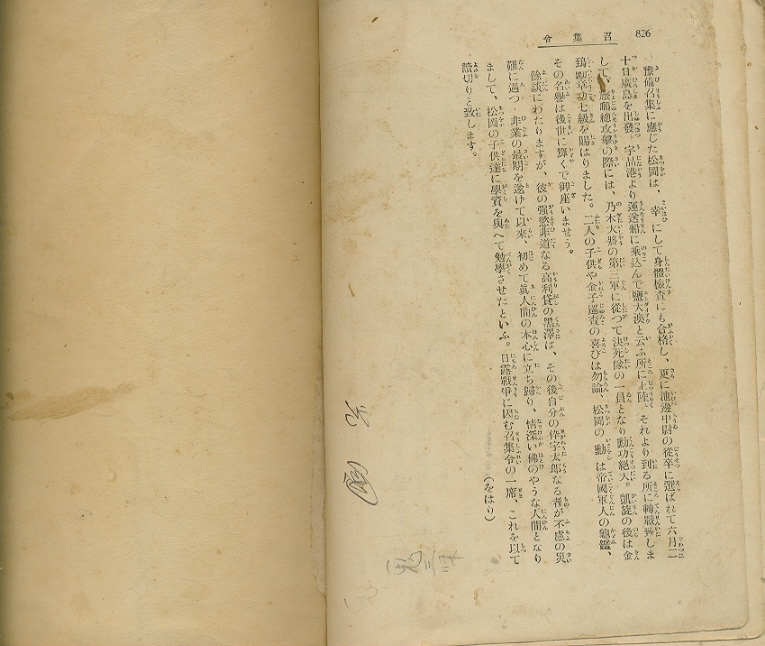 召集令
826
豫備召集に應じた松岡は、幸にして身體檢査にも合格し、更に池邊中尉の從卒に選ばれて六月二
十日廣島を出發、宇品港より運送船に乘込んで鹽大澳と云ふ所に上陸、それより到る所に轉戰致しま
して、旅順總攻擊の際には、乃木大將の第三軍に從つて決死隊の一員となり勳功絕大。凱旋の後は金
鵄勳章功七級を賜はりました。二人の子供や金子巡査の喜びは勿論、松岡の勳は帝國軍人の龜鑑、
その名譽は後世に輝くで御座いませう。
餘談にわたりますが、彼の强慾非道なる高利貸の黑澤は、その後自分の伜宇太郞なる者が不慮の災
難に遇つ非業の最期を遂げて以來、初めて眞人間の本心に立ち歸り、情深い佛のやうな人間となり
まして、松岡の子供達に學資を與へて勉學させたといふ。日露戰爭に因む召集令の一席、これを以て
讀切りと致します。
(をはり)